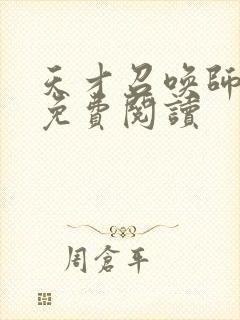 天才召喚師
免費閱讀
周倉平